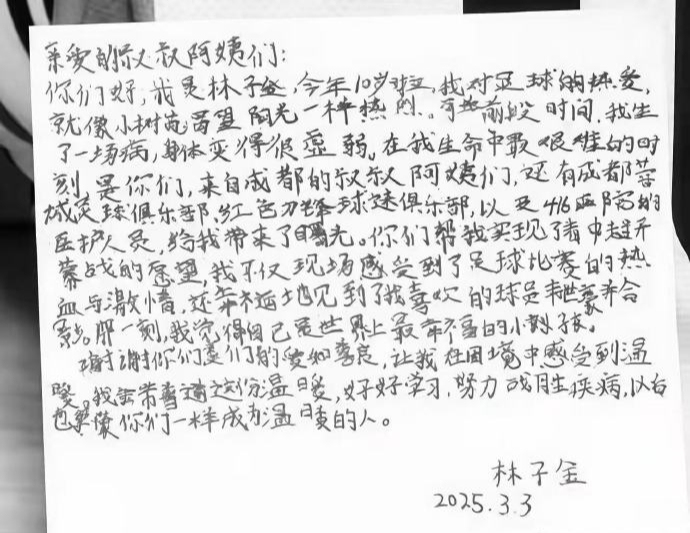 亲爱的叔叔阿姨们:
你们好,我是林子金,今年10岁啦,我对足球的热爱,
就像小树苗渴望阳光一样热烈。可是前段时间,我生
了一场病,身体变得很虚弱。在我生命中最艰难的时
刻,是你们,来自成都的叔叔阿姨们,还有成都蓉
城足球俱乐部,红色刀锋球迷俱乐部,以及416医院的
医护人员,给我带来了曙光。你们帮我实现了看中超开
幕战的愿望,我不仅现场感受到了足球比赛的热
血与激情,还幸运地见到了我喜欢的球员韦世豪并合
影。那一刻,我觉得自己是世界上最幸福的小孩子。
谢谢你们的爱和善良,让我在困境中感受到温
暖。我会带着这份温暖,好好学习,努力战胜疾病,以后
也要像你们一样成为温暖的人。
林子金
2025.3.3